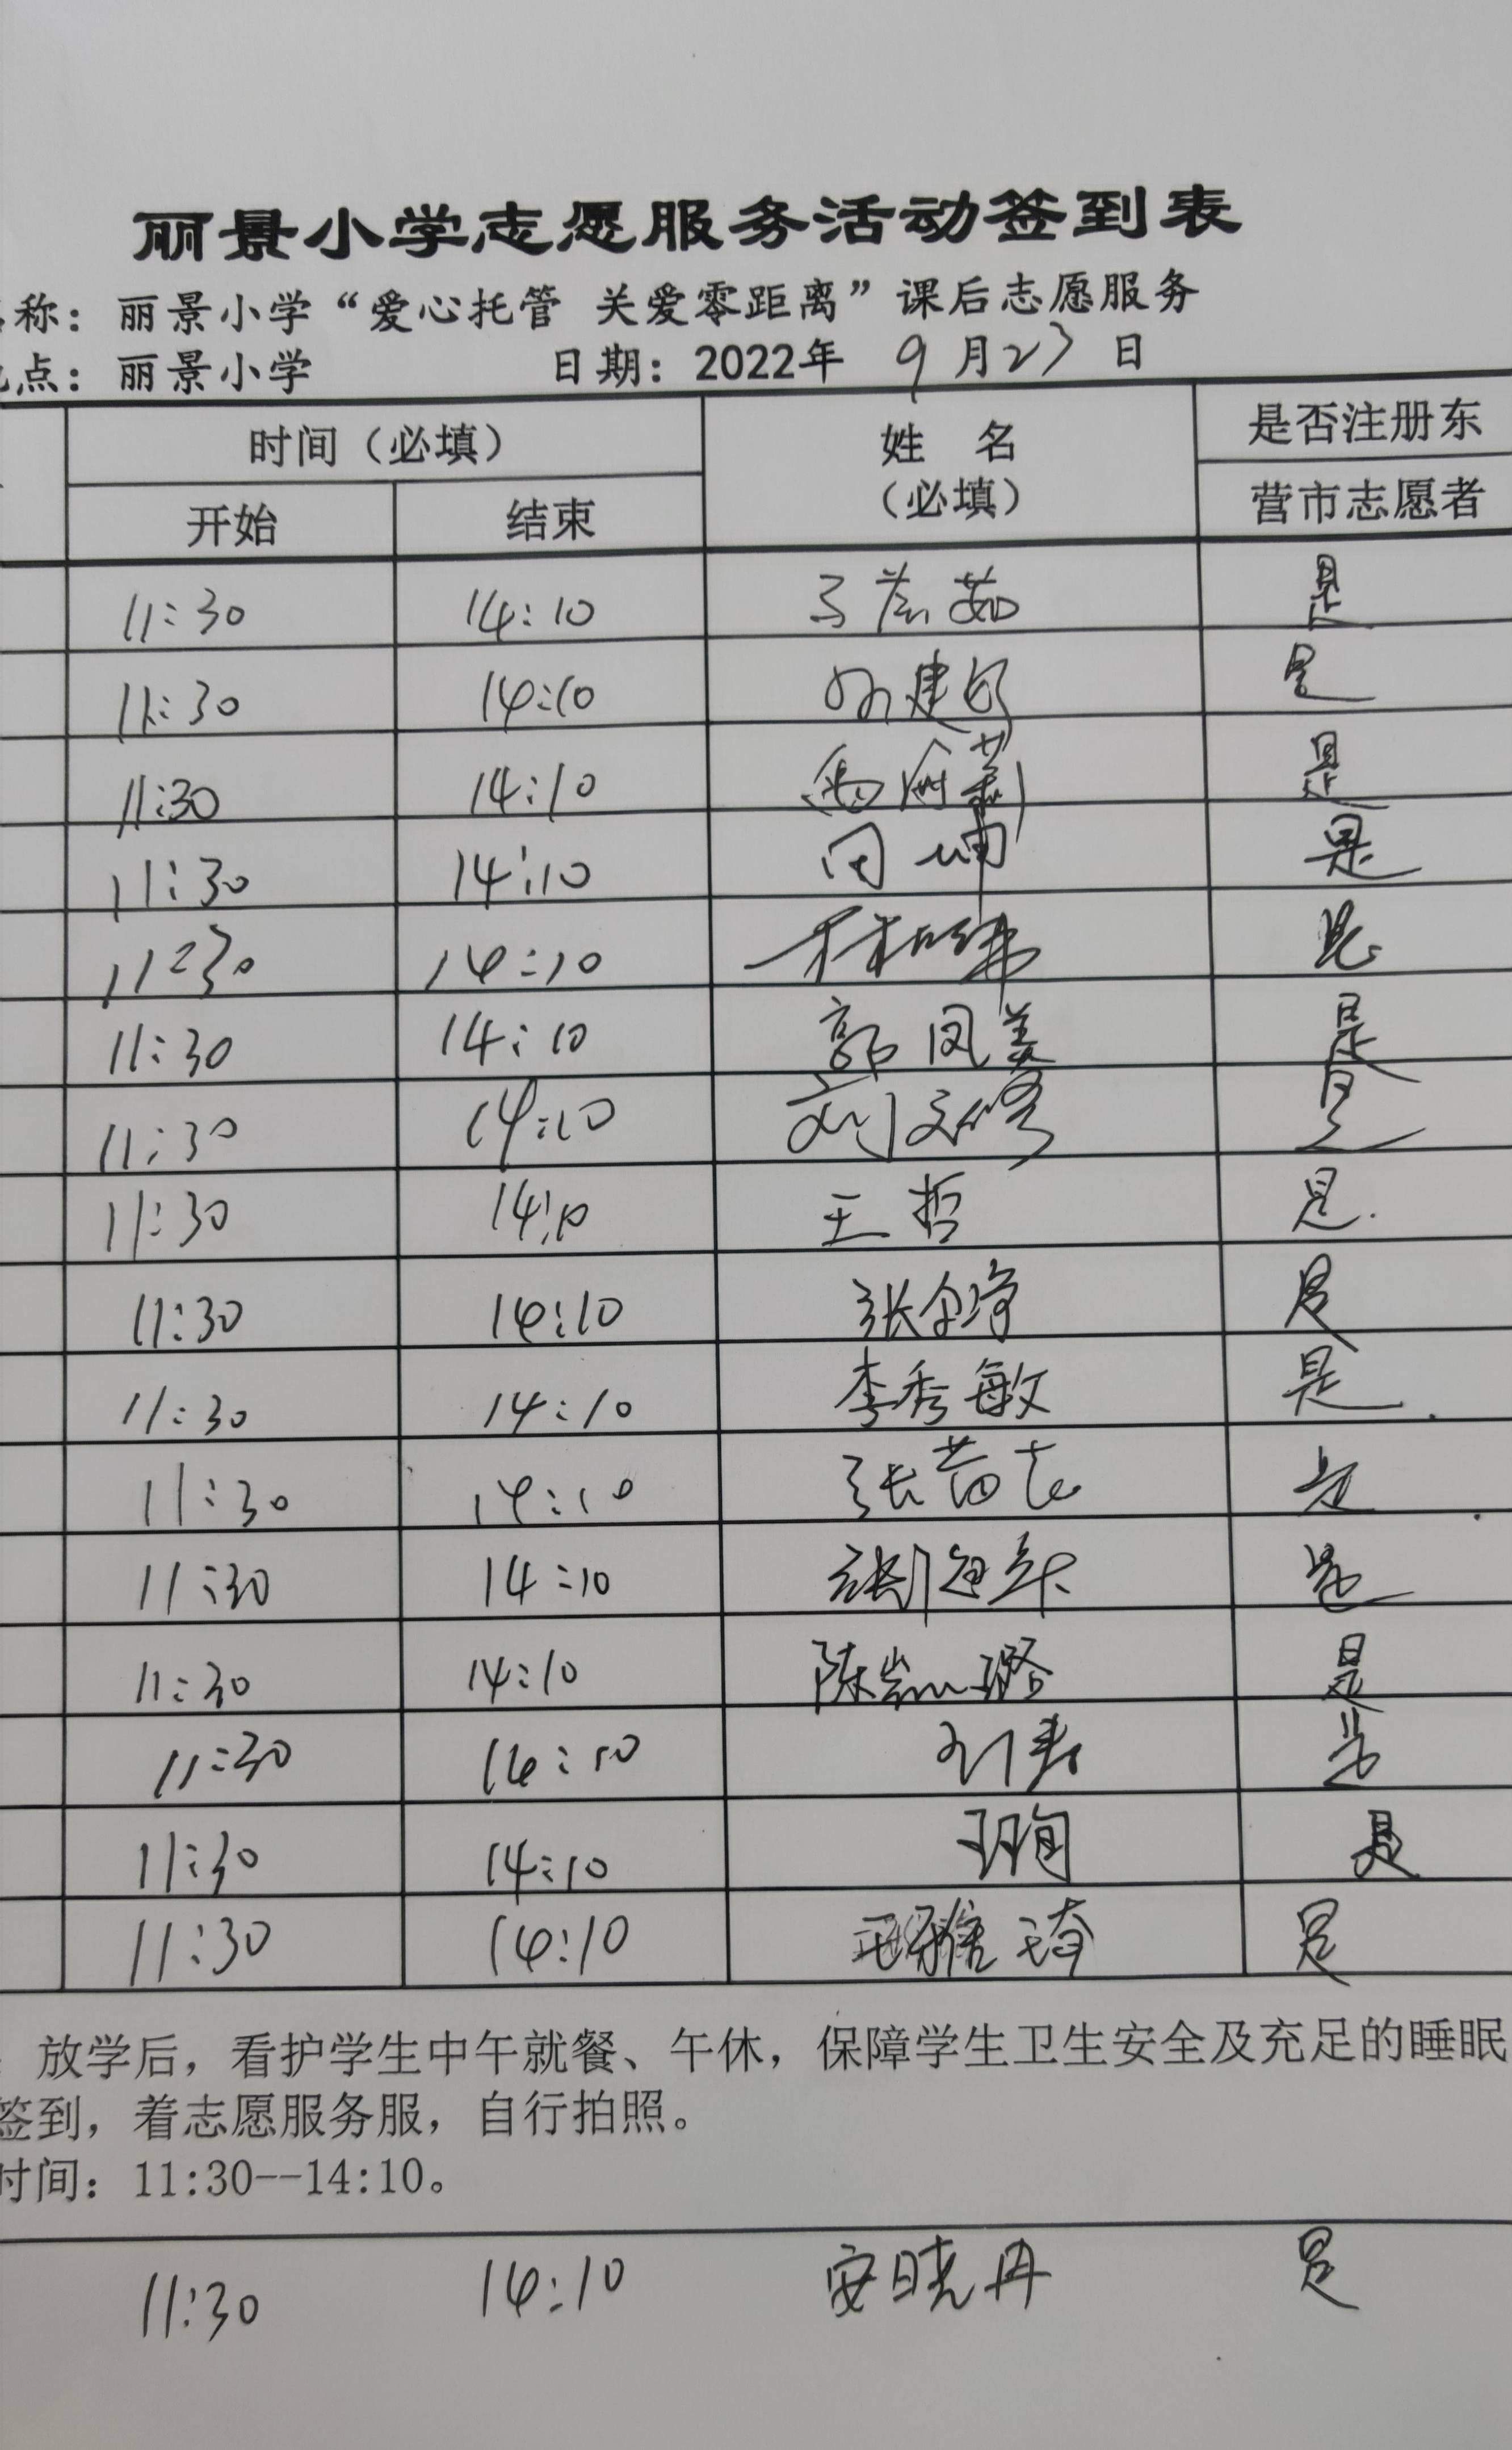 丽景小学志愿服务活动签到表
称：丽景小学“爱心托管 关爱零距离”课后志愿服务
点：丽景小学 日期：2022年 9月23日
时间（必填） 姓 名 是否注册东
开始 结束 （必填） 营市志愿者
11:30 14:10 是
11:30 14:10 是
11:30 14:10 是
11:30 14:10 坤 是
11:30 14:10 是
11:30 14:10 郭凤美 是
11:30 14:10 刘文修 是
11:30 14:10 王哲 是
11:30 14:10 张 是
11:30 14:10 李秀敏 是
11:30 14:10 张 是
11:30 14:10 是
11:30 14:10 陈凯璐 是
11:30 14:10 是
11:30 14:10 是
11:30 14:10 王雅琦 是
放学后，看护学生中午就餐、午休，保障学生卫生安全及充足的睡眠
签到，着志愿服务服，自行拍照。
时间：11:30--14:10。
11:30 14:10 安晓丹 是